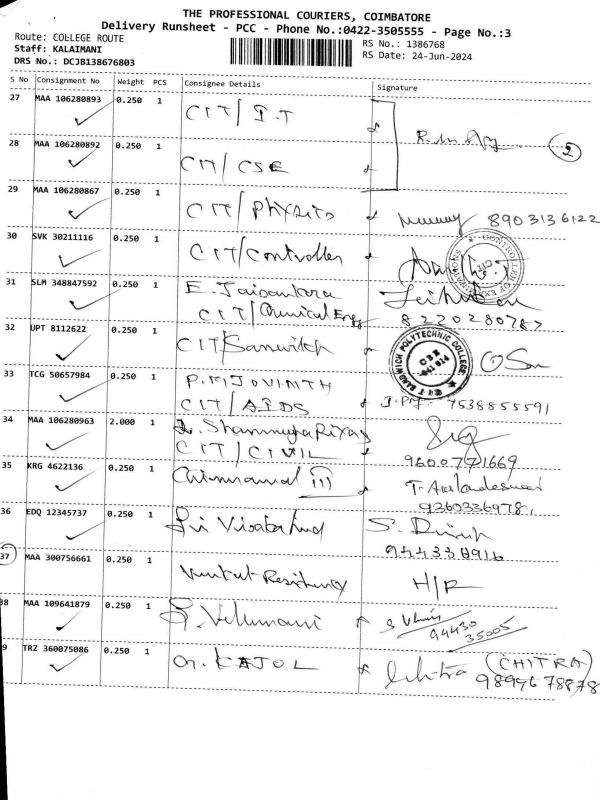 THE PROFESSIONAL COURIERS, COIMBATORE
Delivery Runsheet - PCC - Phone No.:0422-3505555 - Page No.:3
Route: COLLEGE ROUTE
RS No.: 1386768
Staff: KALAIMANI
RS Date: 24-Jun-2024
DRS No.: DCJB138676803
S No Consignment No Weight PCS Consignee Details Signature
27 MAA 106280893 0.250 1 CIT/I.T
2
28 MAA 106280892 0.250 1 CIT/CSE
29 MAA 106280867 0.250 1 CIT/Physics 8903136122
30 SVK 30211116 0.250 1 CIT/Controller
31 SLM 348847592 0.250 1 E. Jaisankara
CIT/Chemical Engg 8220280787
32 UPT 8112622 0.250 1 CIT/Sanwitch
SANDWICH POLYTECHNIC COLLEGE
33 TCG 50657984 0.250 1 P.M JOVINTH
CIT/AIDS 7538855591
34 MAA 106280963 2.000 1 Shanmuga
CIT/CIVIL 9600771669
35 KRG 4622136 0.250 1
9360336978
36 EDQ 12345737 0.250 1 Sri
S. 944338916
37 MAA 300756661 0.250 1 Venkat Residency H/R
38 MAA 109641879 0.250 1 94430
35005
9 TRZ 360075086 0.250 1 G. KAJOL (CHITRA)
9894678878